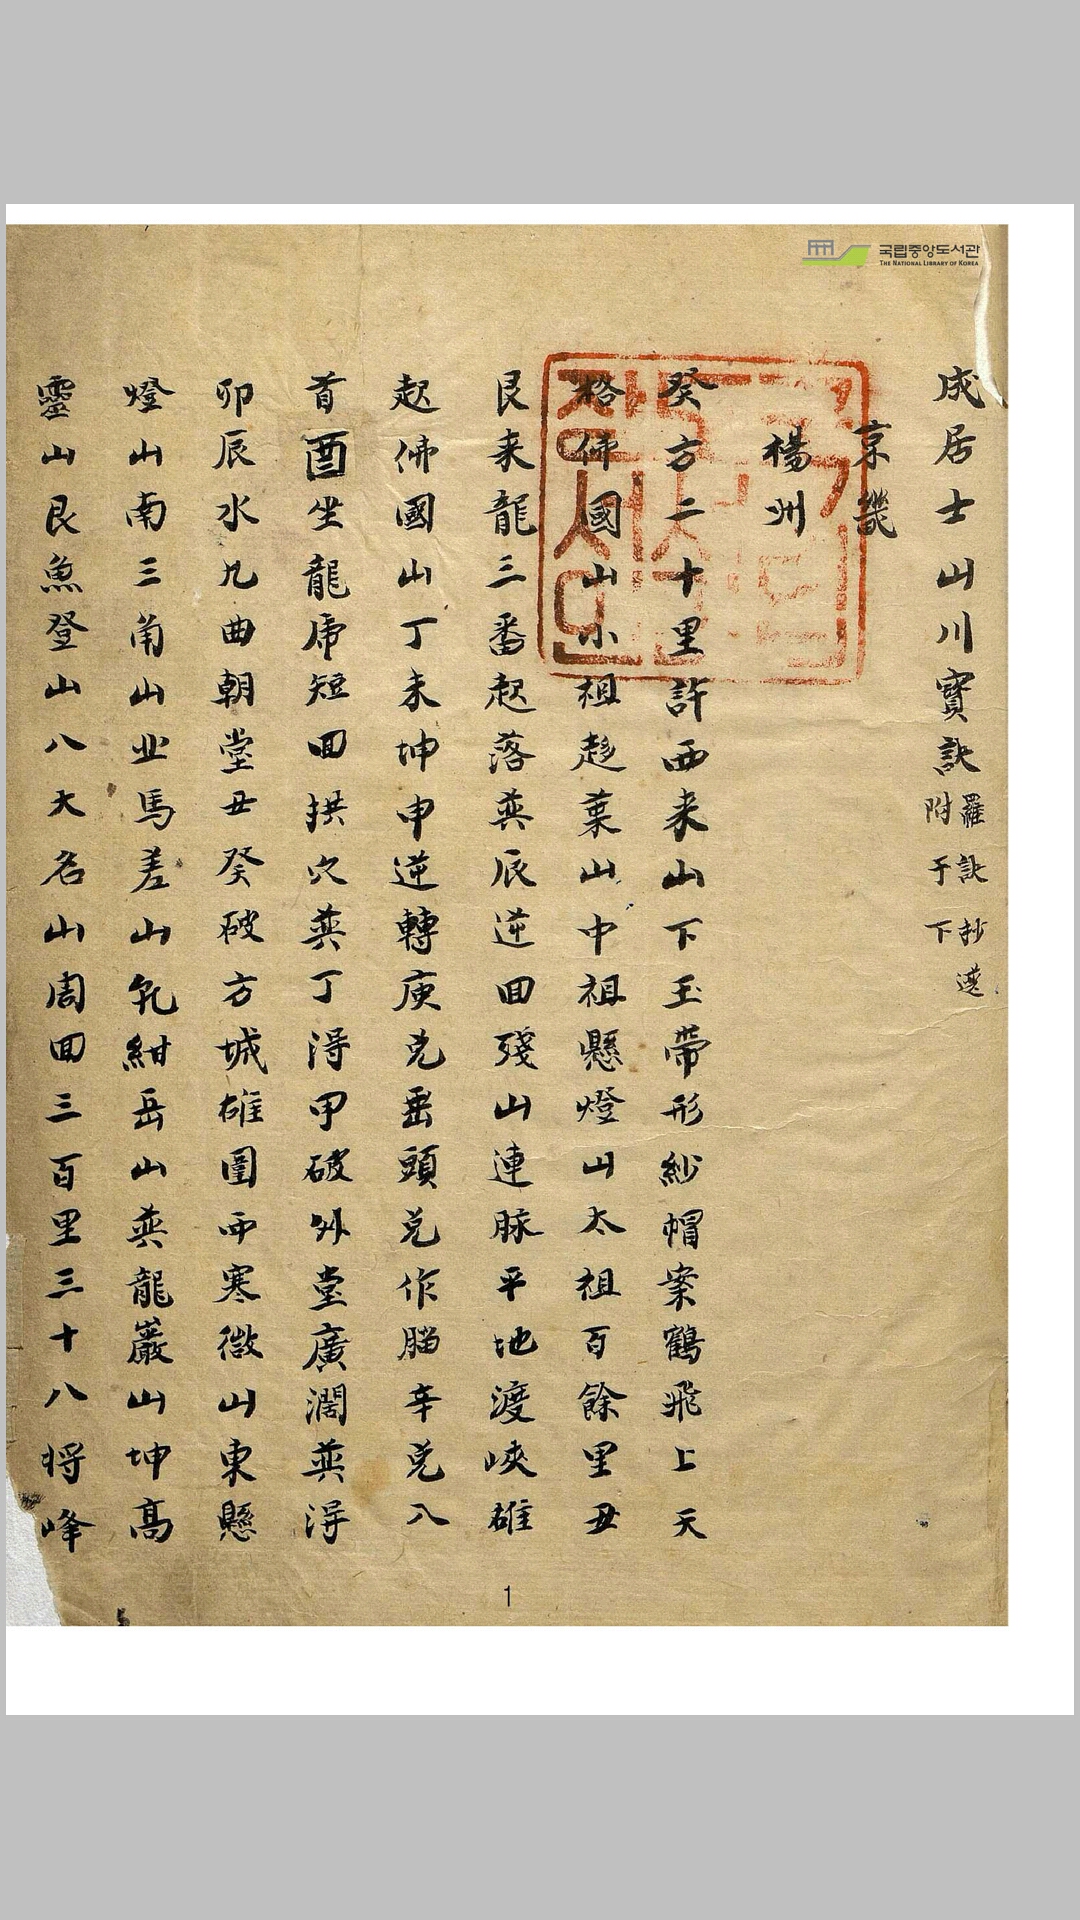 국립중앙도서관
THE NATIONAL LIBRARY OF KOREA
成居士山川寶訣 羅訣抄選附于下
京畿
楊州
癸方二十里許西来山下玉帶形紗帽案鶴飛上天
格佛國山小祖趍葉山中祖懸燈山太祖百餘里丑
艮来龍三番起落巽辰逆回殘山連脉平地渡峽雄
起佛國山丁未坤申逆轉庚兌垂頭兌作腦辛兌入
首酉坐龍虎短回拱穴巽丁淂甲破外堂廣濶巽淂
卯辰水九曲朝堂丑癸破方城雄圍西寒徴山東懸
燈山南三角山北馬差山乾紺岳山巽龍巖山坤高
靈山艮魚登山八大名山周回三百里三十八将峰
1